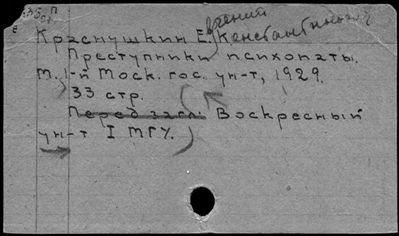 Краснушкин Е. Константинович
евгений
Преступники психопаты.
М. 1-й Моск. гос. ун-т, 1929.
33 стр.
Перед загл. Воскресный
ун-т I МГУ.